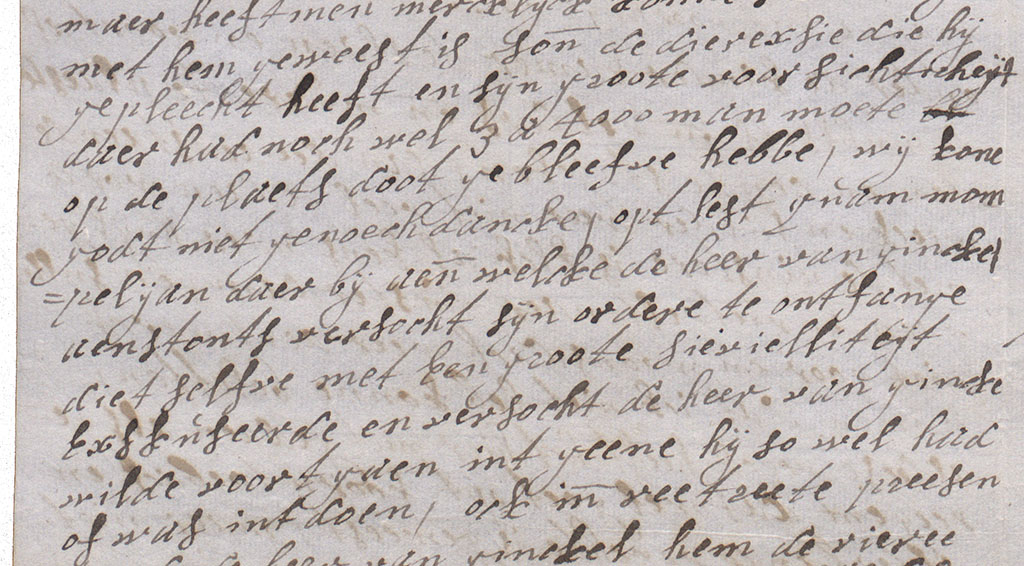 maer heeft men mercklyck
met hem geweest is son de dierexsie die hij
gepleecht heeft en sijn groote voorsichticheijt
daer had noch wel 3 a 4000 man moete
op de plaets doot gebleefve hebbe, wij kone
godt niet genoech dancke, opt lest quam mom
=pelyan daer bij aen welcke de heer van ginckel
aenstonts versocht sijn ordere te ontfange
diet selfve met een groote sievielliteijt
exskuseerde en versocht de heer van gincke
wilde voort gaen int geene hij so wel had
of was int doen, ock in reetreete preesen
de heer van ginckel hem de vieree